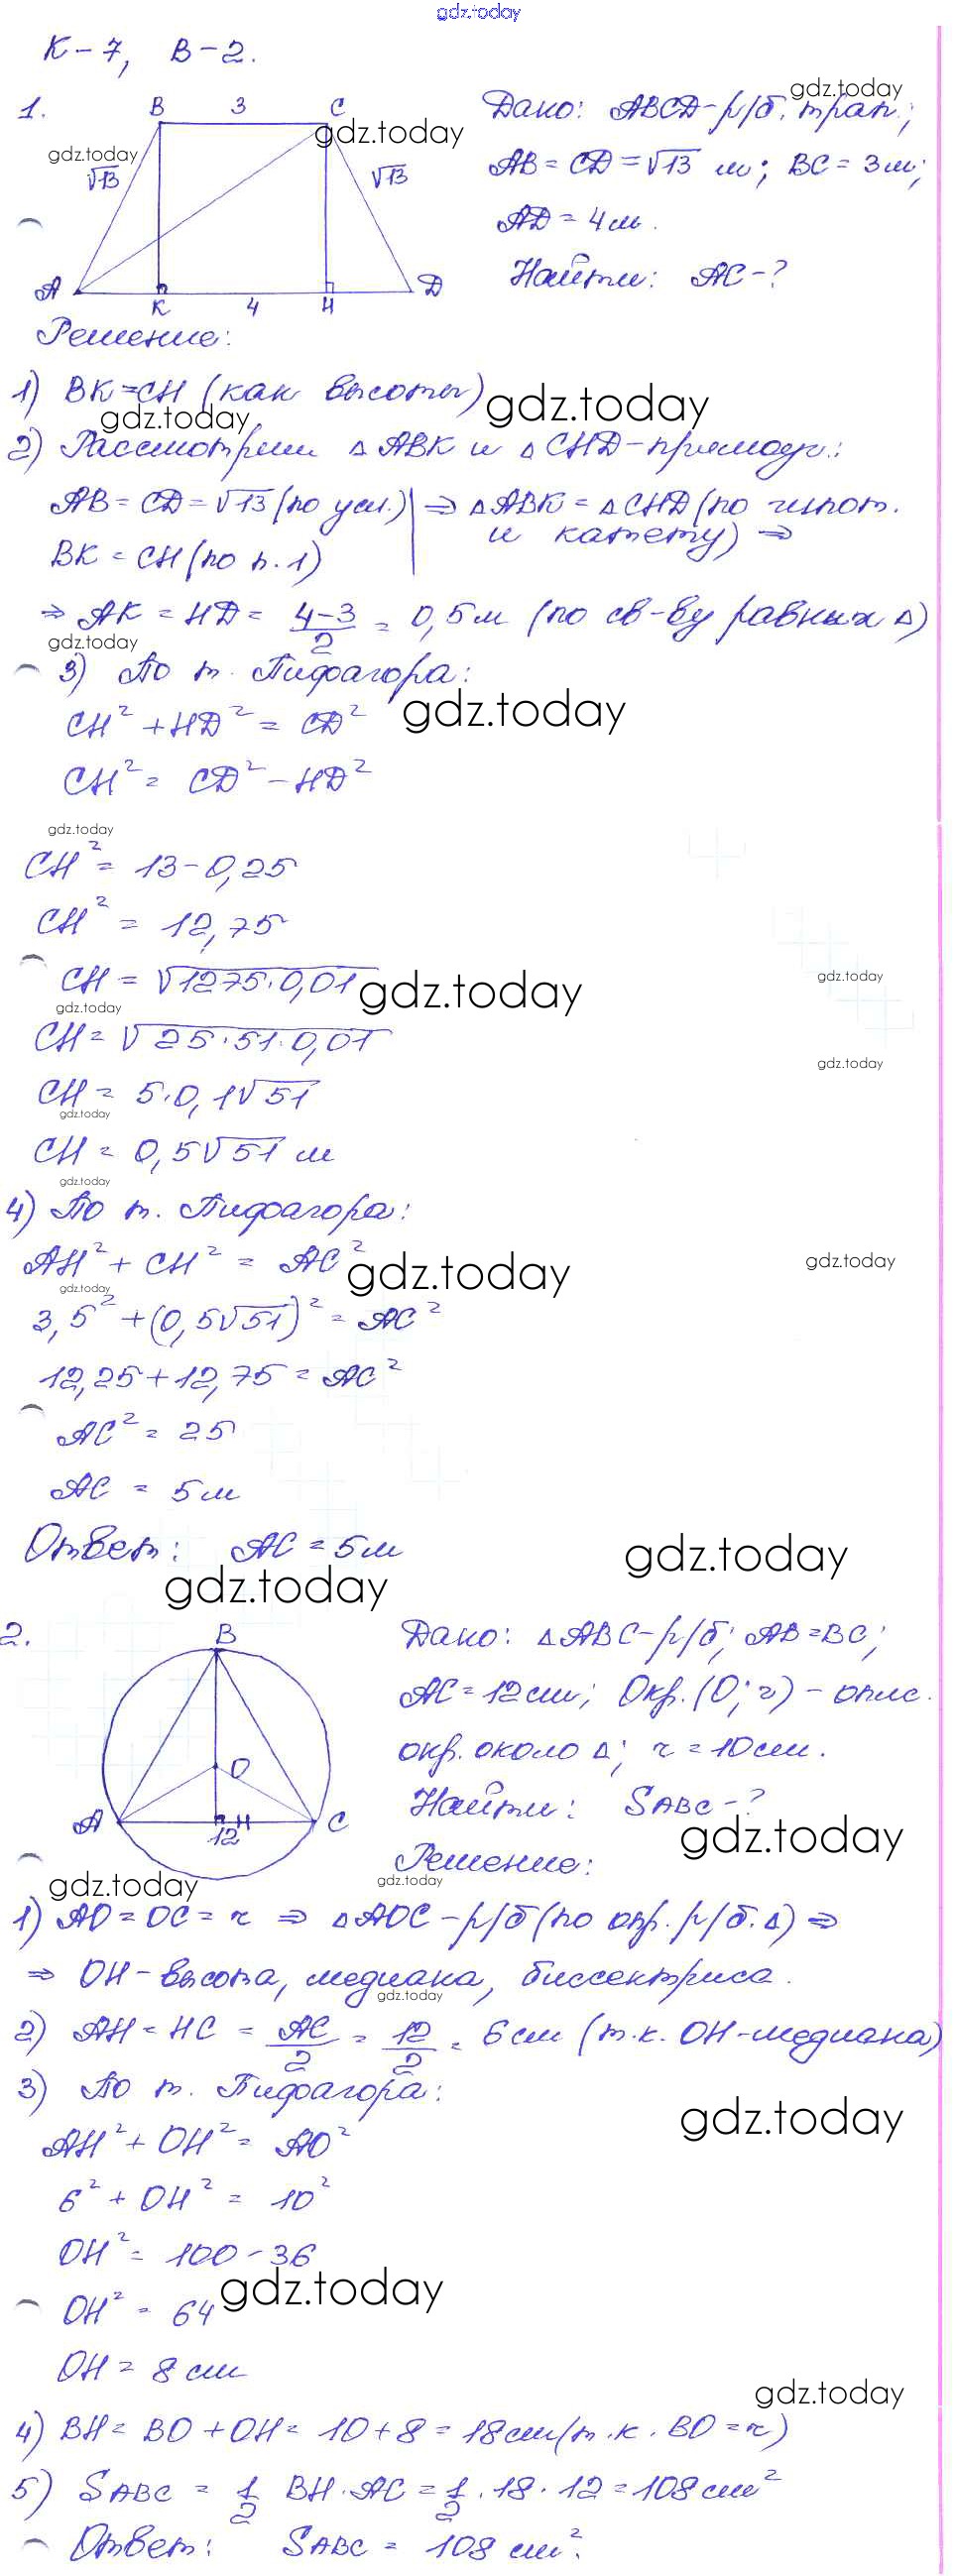 gdz.today
К-7, В-2.
1.
B 3 C
√13 √13
A K 4 H D
Дано: ABCD-р/б. трап.;
AB = CD = √13 м; BC = 3м;
AD = 4м.
Найти: AC-?
Решение:
1) BK=CH (как высоты)
2) Рассмотрим △ABK и △CHD-прямоуг.:
AB = CD = √13 (по усл.) | ⇒ △ABK = △CHD (по гипот.
BK = CH (по п.1) | и катету) ⇒
⇒ AK = HD = (4-3)/2 = 0,5м (по св-ву равных △)
3) По т. Пифагора:
CH² + HD² = CD²
CH² = CD² - HD²
CH² = 13-0,25
CH² = 12,75
CH = √1275·0,01
CH = √25·51·0,01
CH = 5·0,1√51
CH = 0,5√51 м
4) По т. Пифагора:
AH² + CH² = AC²
3,5² + (0,5√51)² = AC²
12,25+12,75 = AC²
AC² = 25
AC = 5м
Ответ: AC = 5м
2.
B
O
A 12 H C
Дано: △ABC-р/б; AB=BC;
AC=12см; Окр.(O; r) - опис.
окр. около △; r = 10см.
Найти: SABC-?
Решение:
1) AO = OC = r ⇒ △AOC-р/б (по опр. р/б. △) ⇒
⇒ OH-высота, медиана, биссектриса.
2) AH = HC = AC/2 = 12/2 = 6см (т.к. OH-медиана)
3) По т. Пифагора:
AH² + OH² = AO²
6² + OH² = 10²
OH² = 100-36
OH² = 64
OH = 8 см
4) BH = BO + OH = 10+8 = 18см (т.к. BO = r)
5) SABC = 1/2 BH·AC = 1/2·18·12=108см²
Ответ: SABC = 108 см².